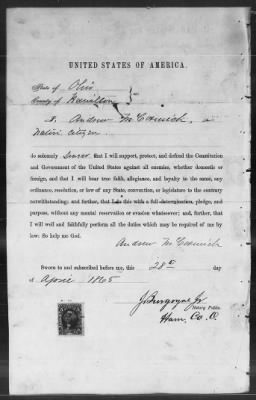 UNITED STATES OF AMERICA.
State of Ohio
County of Hamilton
I, Andrew McCormick, a
Native Citizen
do solemnly Swear, that I will support, protect, and defend the Constitution
and Government of the United States against all enemies, whether domestic or
foreign, and that I will bear true faith, allegiance, and loyalty to the same, any
ordinance, resolution, or law of any State, convention, or legislature to the contrary
notwithstanding; and further, that I do this with a full determination, pledge, and
purpose, without any mental reservation or evasion whatsoever; and, further, that
I will well and faithfully perform all the duties which may be required of me by
law: So help me God.
Andrew McCormick
Sworn to and subscribed before me, this 28th day
of April 1865
J. Burgoyne Jr
Notary Public
Ham. Co. O.